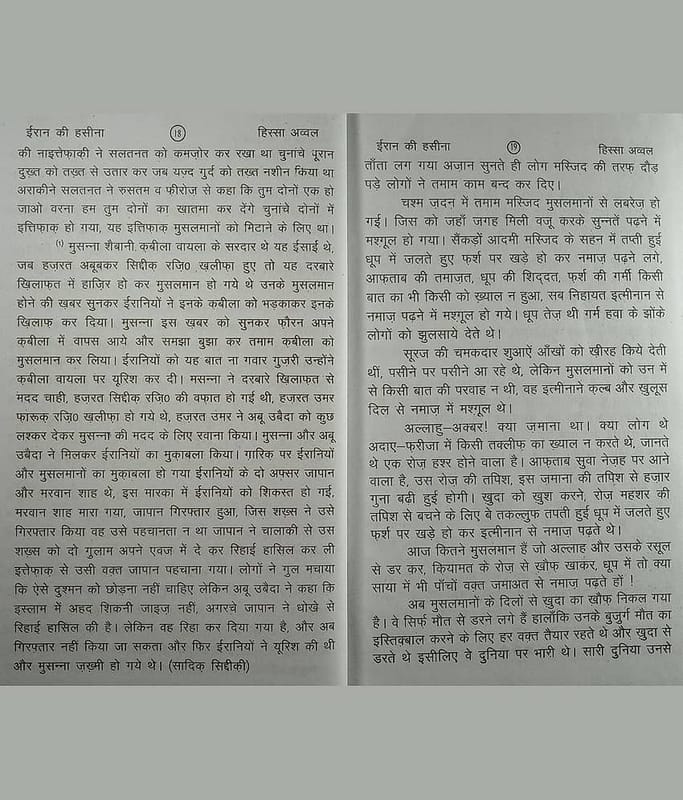 ईरान की हसीना 18 हिस्सा अव्वल
की नाइत्तेफ़ाक़ी ने सलतनत को कमज़ोर कर रखा था चुनांचे पूरान
दुख़्त को तख़्त से उतार कर जब यज़्द गुर्द को तख़्त नशीन किया था
अराकीने सलतनत ने रुसतम व फ़ीरोज़ से कहा कि तुम दोनों एक हो
जाओ वरना हम तुम दोनों का खातमा कर देंगे चुनांचे दोनों में
इत्तिफ़ाक़ हो गया, यह इत्तिफ़ाक़ मुसलमानों को मिटाने के लिए था।
(1) मुसन्ना शैबानी क़बीला वायला के सरदार थे यह ईसाई थे,
जब हज़रत अबूबकर सिद्दीक़ रज़ि0 ख़लीफ़ा हुए तो यह दरबारे
ख़िलाफ़त में हाज़िर हो कर मुसलमान हो गये थे उनके मुसलमान
होने की ख़बर सुनकर ईरानियों ने इनके क़बीला को भड़काकर इनके
ख़िलाफ़ कर दिया। मुसन्ना इस ख़बर को सुनकर फौरन अपने
क़बीला में वापस आये और समझा बुझा कर तमाम क़बीला को
मुसलमान कर लिया। ईरानियों को यह बात ना गवार गुजरी उन्होंने
क़बीला वायला पर यूरिश कर दी। मसन्ना ने दरबारे ख़िलाफ़त से
मदद चाही, हज़रत सिद्दीक़ रज़ि0 की वफ़ात हो गई थी, हजरत उमर
फ़ारूक़ रज़ि0 ख़लीफ़ा हो गये थे, हजरत उमर ने अबू उबैदा को कुछ
लश्कर देकर मुसन्ना की मदद के लिए रवाना किया। मुसन्ना और अबू
उबैदा ने मिलकर ईरानियों का मुक़ाबला किया। ग़ारिक़ पर ईरानियों
और मुसलमानों का मुक़ाबला हो गया ईरानियों के दो अफ्सर जापान
और मरवान शाह थे, इस मारका में ईरानियों को शिकस्त हो गई,
मरवान शाह मारा गया, जापान गिरफ्तार हुआ, जिस शख़्स ने उसे
गिरफ्तार किया वह उसे पहचानता न था जापान ने चालाकी से उस
शख़्स को दो गुलाम अपने एवज में दे कर रिहाई हासिल कर ली
इत्तेफ़ाक़ से उसी वक़्त जापान पहचाना गया। लोगों ने गुल मचाया
कि ऐसे दुश्मन को छोड़ना नहीं चाहिए लेकिन अबू उबैदा ने कहा कि
इस्लाम में अहद शिकनी जाइज़ नहीं, अगरचे जापान ने धोखे से
रिहाई हासिल की है। लेकिन वह रिहा कर दिया गया है, और अब
गिरफ्तार नहीं किया जा सकता और फिर ईरानियों ने यूरिश की थी
और मुसन्ना ज़ख़्मी हो गये थे। (सादिक़ सिद्दीक़ी)
ईरान की हसीना 19 हिस्सा अव्वल
ताँता लग गया अज़ान सुनते ही लोग मस्जिद की तरफ़ दौड़
पड़े लोगों ने तमाम काम बन्द कर दिए।
चश्म ज़दन में तमाम मस्जिद मुसलमानों से लबरेज़ हो
गई। जिस को जहाँ जगह मिली वजू करके सुन्नतें पढ़ने में
मश्गूल हो गया। सैंकड़ों आदमी मस्जिद के सहन में तप्ती हुई
धूप में जलते हुए फ़र्श पर खड़े हो कर नमाज़ पढ़ने लगे,
आफताब की तमाजत, धूप की शिद्दत, फ़र्श की गर्मी किसी
बात का भी किसी को ख़्याल न हुआ, सब निहायत इत्मीनान से
नमाज़ पढ़ने में मश्गूल हो गये। धूप तेज़ थी गर्म हवा के झोंके
लोगों को झुलसाये देते थे।
सूरज की चमकदार शुआऐं आँखों को ख़ीरह किये देती
थीं, पसीने पर पसीने आ रहे थे, लेकिन मुसलमानों को उन में
से किसी बात की परवाह न थी, वह इत्मीनाने क़ल्ब और खुलूस
दिल से नमाज़ में मश्गूल थे।
अल्लाहु-अक्बर! क्या ज़माना था। क्या लोग थे
अदाए-फरीजा में किसी तक्लीफ़ का ख़्याल न करते थे, जानते
थे एक रोज़ हश्र होने वाला है। आफ़्ताब सुवा नेज़ह पर आने
वाला है, उस रोज़ की तपिश, इस जमाना की तपिश से हज़ार
गुना बढ़ी हुई होगी। खुदा को खुश करने, रोज़ महशर की
तपिश से बचने के लिए बे तकल्लुफ तपती हुई धूप में जलते हुए
फर्श पर खड़े हो कर इत्मीनान से नमाज़ पढ़ते थे।
आज कितने मुसलमान हैं जो अल्लाह और उसके रसूल
से डर कर, क़ियामत के रोज़ से ख़ौफ़ खाकर, धूप में तो क्या
साया में भी पाँचों वक़्त जमाअत से नमाज़ पढ़ते हों !
अब मुसलमानों के दिलों से खुदा का ख़ौफ निकल गया
है। वे सिर्फ़ मौत से डरने लगे हैं हालाँकि उनके बुज़ुर्ग मौत का
इस्तिक़्बाल करने के लिए हर वक़्त तैयार रहते थे और खुदा से
डरते थे इसीलिए वे दुनिया पर भारी थे। सारी दुनिया उनसे